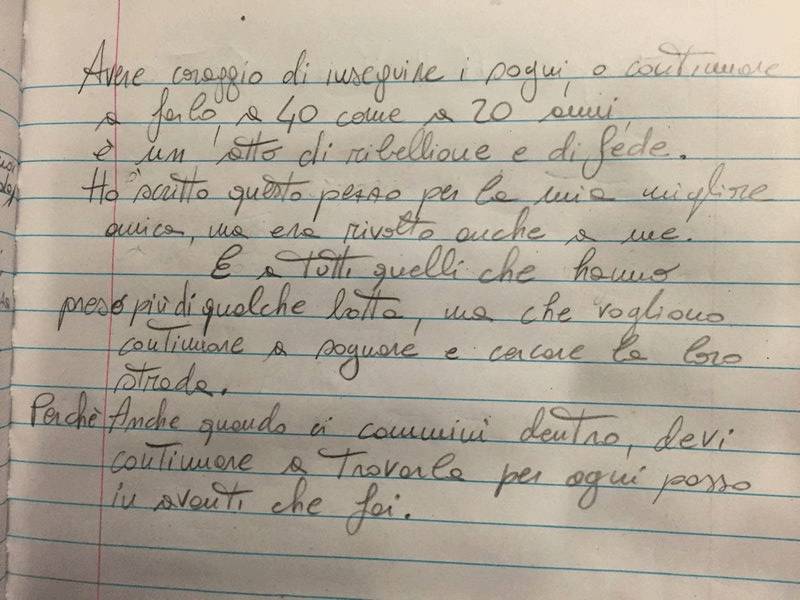 Avere coraggio di inseguire i sogni, o continuare
a farlo, a 40 come a 20 anni,
è un atto di ribellione e di fede.
Ho scritto questo pezzo per la mia migliore
amica, ma era rivolto anche a me.
E a tutti quelli che hanno
preso più di qualche botta, ma che vogliono
continuare a sognare e cercare la loro
strada.
Perchè Anche quando ci cammini dentro, devi
continuare a trovarla per ogni passo
in avanti che fai.